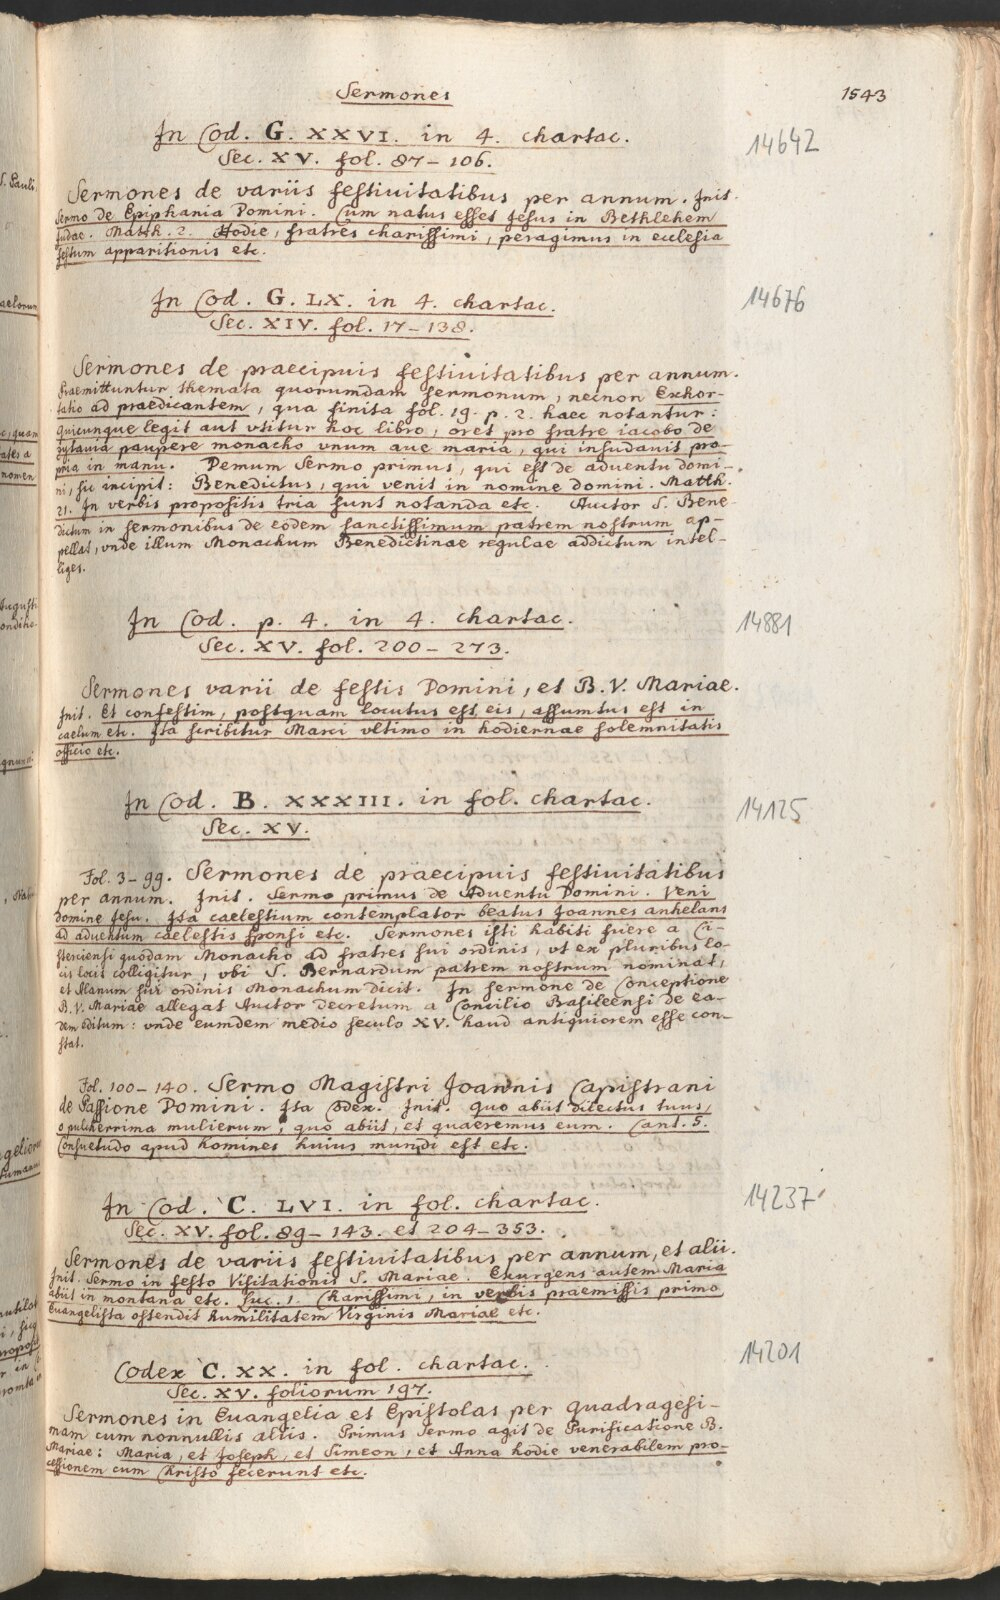 Sermones
1543
In Cod. G. XXVI. in 4. chartac.
14642
Sec. XV. fol. 87-106.
Sermones de variis festiuitatibus per annum. Init.
Sermo de Epiphania Domini. Cum natus esset Jesus in Bethlehem
Judae. Matth. 2. Hodie, fratres charissimi, peragimus in ecclesia
festum apparitionis etc.
In Cod. G. LX. in 4. chartac.
14676
Sec. XIV. fol. 17-138.
Sermones de praecipuis festiuitatibus per annum.
Praemittuntur themata quorumdam sermonum, necnon Exhor-
tatio ad praedicantem, qua finita fol. 19. p. 2. haec notantur:
Quicunque legit aut vtitur hoc libro, oret pro fratre iacobo de
paupere monacho vnum aue maria, qui insudauit pro-
pria in manu. Demum Sermo primus, qui est de aduentu domi-
ni, sic incipit: Benedictus, qui venit in nomine domini. Matth.
21. In verbis propositis tria sunt notanda etc. Auctor S. Bene-
dictum in sermonibus de eodem sanctissimum patrem nostrum ap-
pellat, vnde illum Monachum Benedictinae regulae addictum intel-
liges.
In Cod. p. 4. in 4. chartac.
14881
Sec. XV. fol. 200-273.
Sermones varii de festis Domini, et B. V. Mariae.
Init. Et confestim, postquam locutus est eis, assumtus est in
caelum etc. Ita scribitur Marci vltimo in hodiernae solemnitatis
officio etc.
In Cod. B. XXXIII. in fol. chartac.
14125
Sec. XV.
Fol. 3-99. Sermones de praecipuis festiuitatibus
per annum. Init. Sermo primus de Aduentu Domini. Veni
domine Jesu. Ita caelestium contemplator beatus Joannes anhelans
ad aduentum caelestis sponsi etc. Sermones isti habiti fuere a Ci-
sterciensi quodam Monacho ad fratres sui ordinis, vt ex pluribus lo-
cis locis colligitur, vbi S. Bernardum patrem nostrum nominat,
et Alanum sui ordinis Monachum dicit. In sermone de Conceptione
B. V. Mariae allegat Auctor decretum a Concilio Basileensi de ea-
dem editum: vnde eumdem medio seculo XV. haud antiquiorem esse con-
stat.
Fol. 100-140. Sermo Magistri Joannis Capistrani
de Passione Domini. Ita Codex. Init. Quo abiit dilectus tuus,
o pulcherrima mulierum, quo abiit, et quaeremus eum. Cant. 5.
Consuetudo apud homines huius mundi est etc.
In Cod. C. LVI. in fol. chartac.
14237
Sec. XV. fol. 89-143. et 204-353.
Sermones de variis festiuitatibus per annum, et alii.
Init. Sermo in festo Visitationis S. Mariae. Exurgens autem Maria
abiit in montana etc. Luc. 1. Charissimi, in verbis praemissis primo
Euangelista ostendit humilitatem Virginis Mariae etc.
Codex C. XX. in fol. chartac.
14201
Sec. XV. foliorum 197.
Sermones in Euangelia et Epistolas per quadragesi-
mam cum nonnullis aliis. Primus Sermo agit de Purificatione B.
Mariae: Maria, et Joseph, et Simeon, et Anna hodie venerabilem pro-
cessionem cum Christo fecerunt etc.